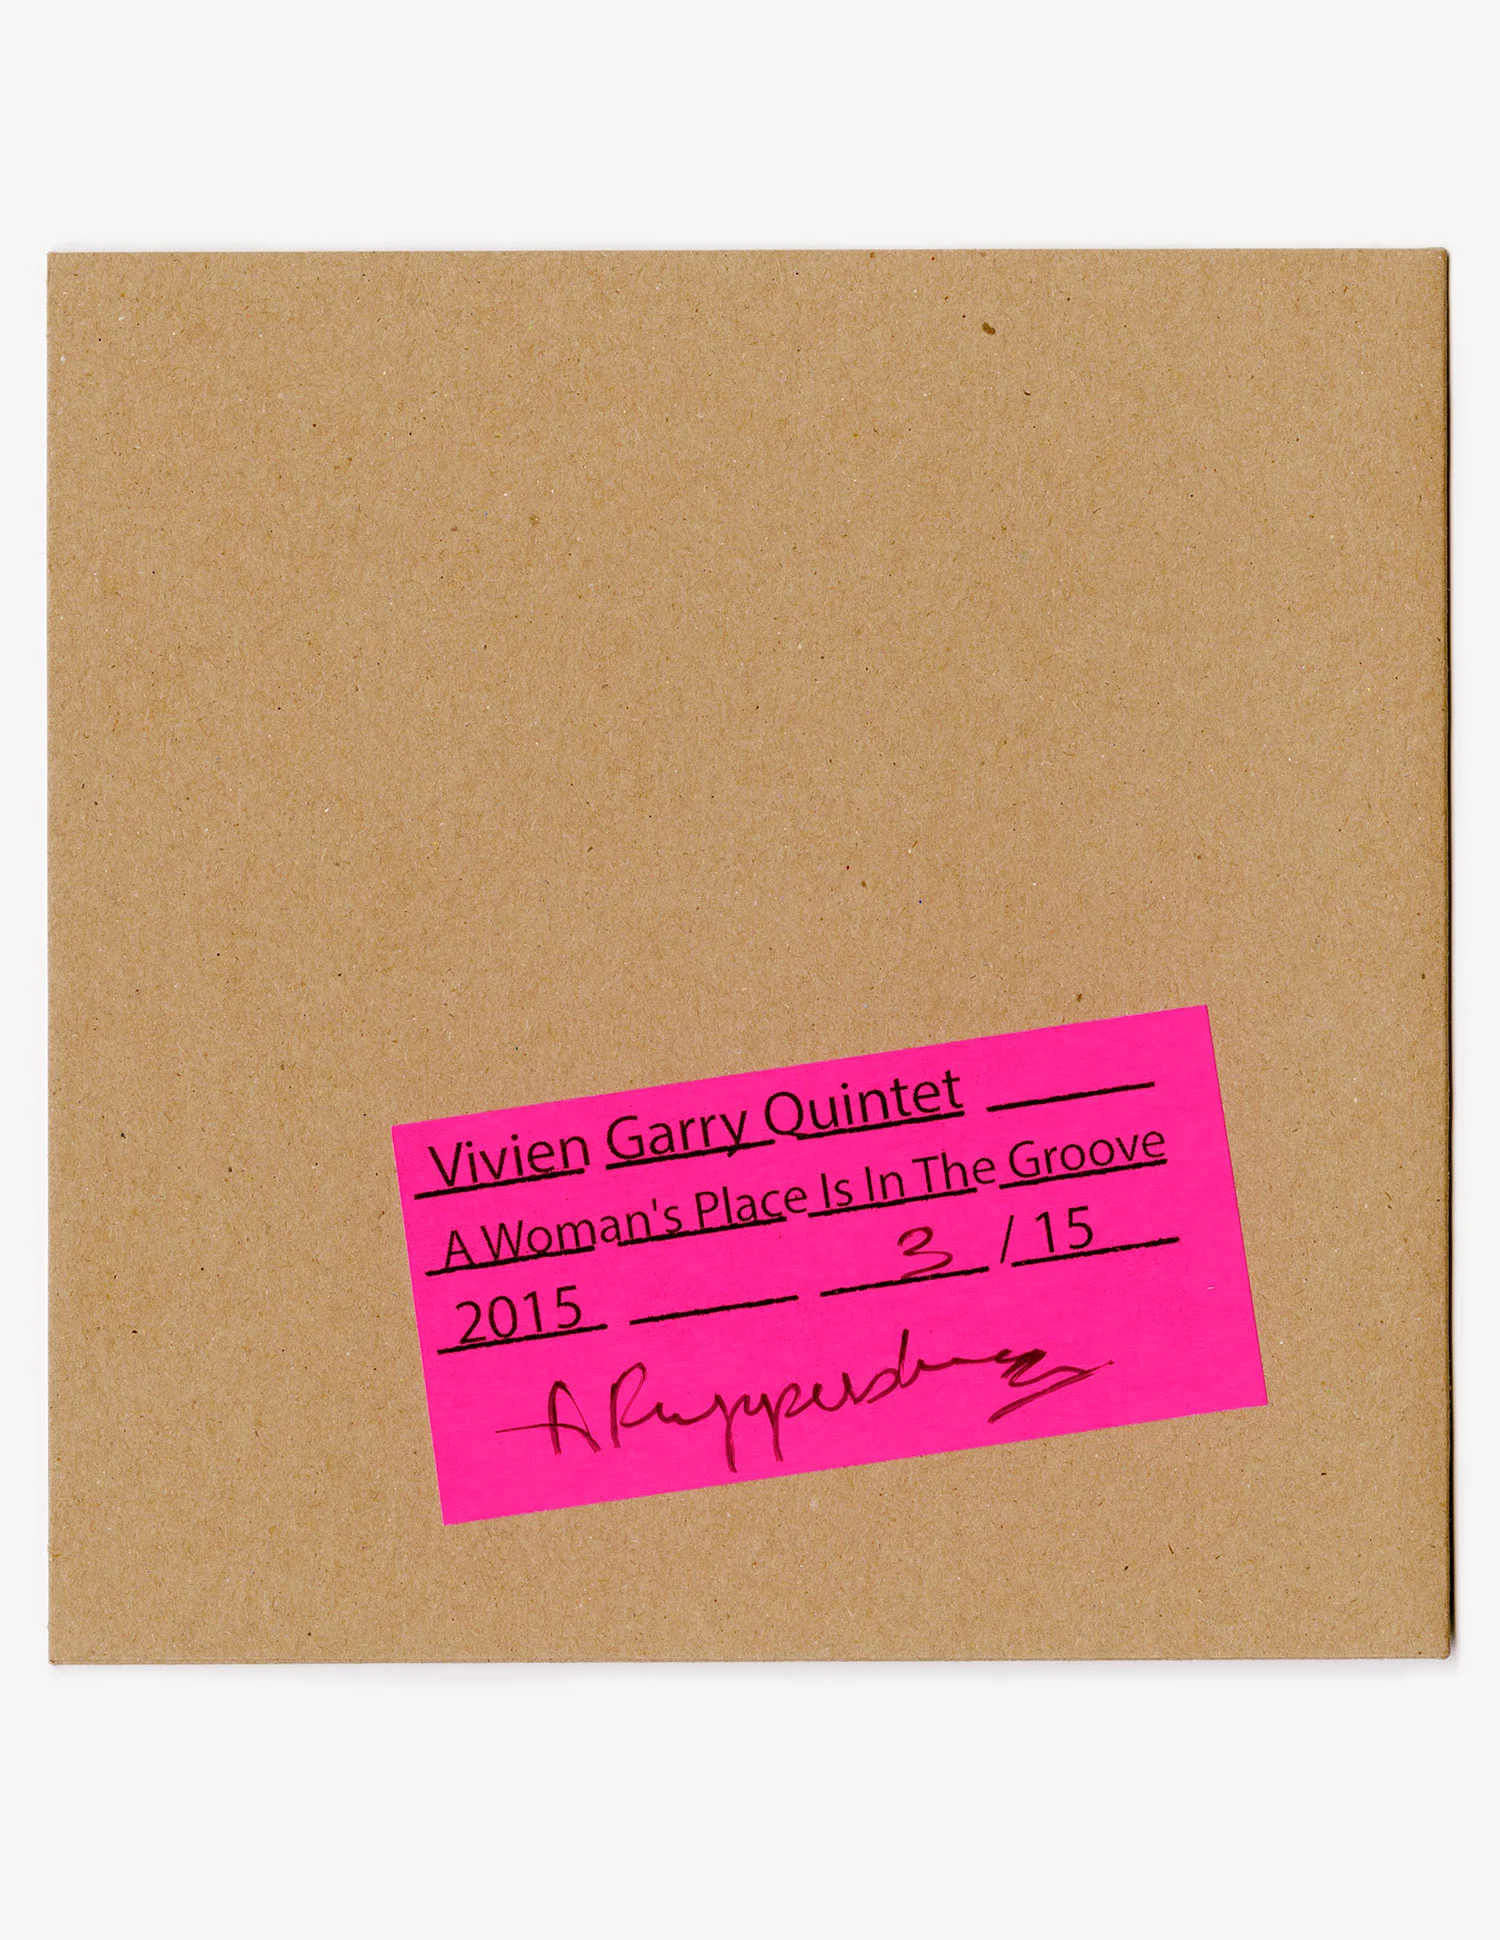 Vivien Garry Quintet
A Woman's Place Is In The Groove
2015 3 / 15
A Ruppersberg